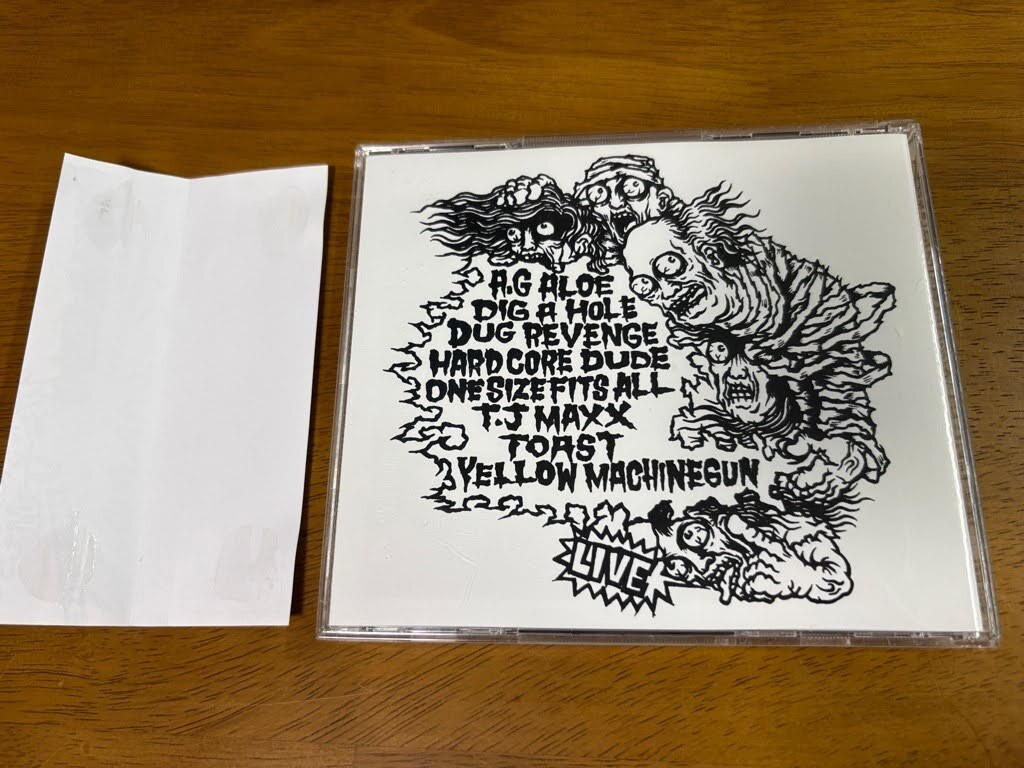 A.G ALOE
DIG A HOLE
DUG REVENGE
HARDCORE DUDE
ONE SIZE FITS ALL
T.J MAXX
TOAST
YELLOW MACHINEGUN
LIVE